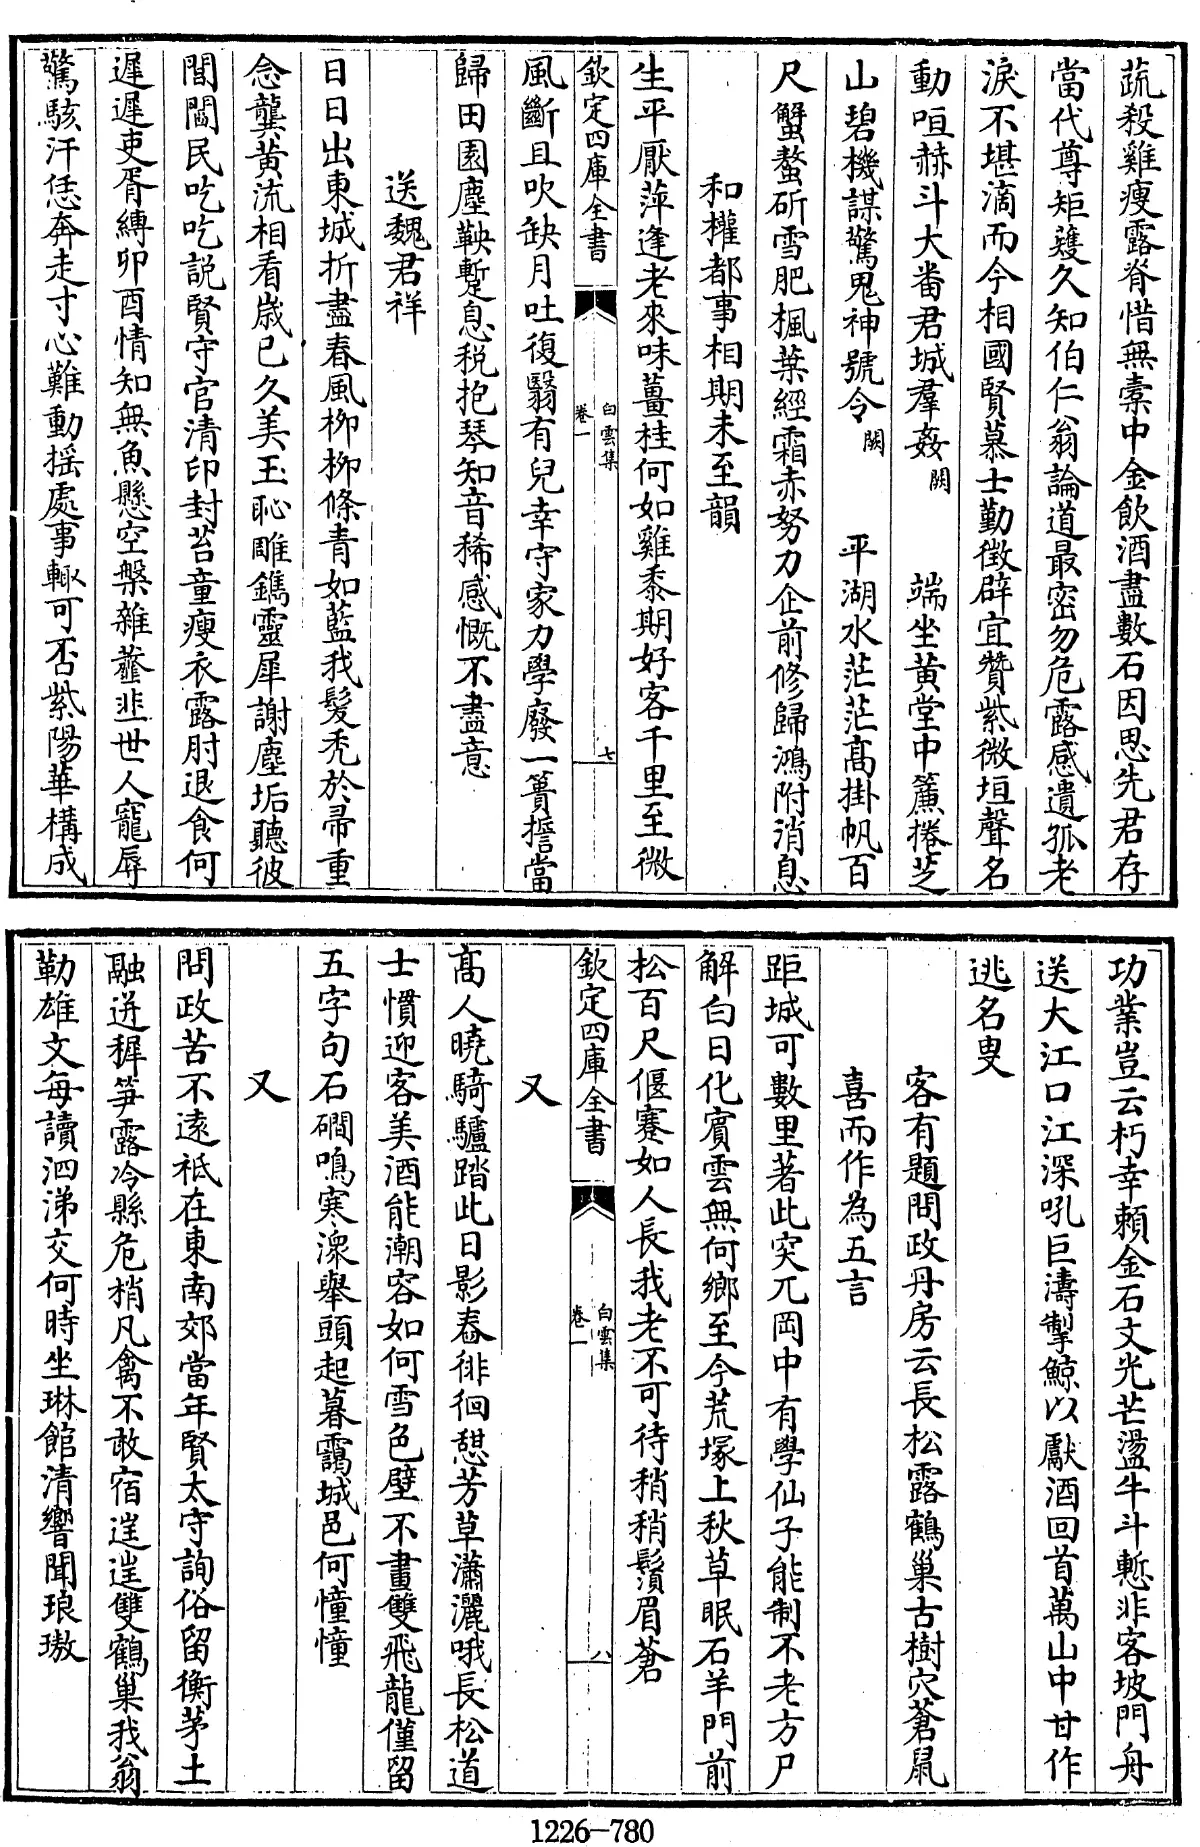 蔬殺雞瘦露脊惜無橐中金飲酒盡數石因思先君存
當代尊矩矱久知伯仁翁論道最密勿危露感遺孤老
淚不堪滴而今相國賢慕士勤徴辟宜贊紫微垣聲名
動咺赫斗大畨君城羣姦闕端坐黄堂中簾捲芝
山碧機謀驚鬼神號令闕平湖水茫茫髙掛帆百
尺蟹螯斫雪肥楓葉經霜赤努力企前修歸鴻附消息
和權都事相期未至韻
生平厭萍逢老來味薑桂何如雞黍期好客千里至微
欽定四庫全書
白雲集
卷一
七
風斷且吹缺月吐復翳有兒幸守家力學廢一簣擔當
歸田園塵鞅蹔息税抱琴知音稀感慨不盡意
送魏君祥
日日出東城折盡春風柳柳條青如藍我髮秃於帚重
念龔黄流相看嵗已久美玉恥雕鐫靈犀謝塵垢聽彼
閭閻民吃吃説賢守官清印封苔童瘦衣露肘退食何
遲遲吏胥縛卯酉情知無魚懸空槃雜虀韭世人寵辱
驚駭汗恁奔走寸心難動揺處事輙可否紫陽華構成
功業豈云朽幸頼金石文光芒盪牛斗慙非客坡門舟
送大江口江深吼巨濤掣鯨以獻酒回首萬山中甘作
逃名叟
客有題問政丹房云長松露鶴巢古樹穴蒼鼠
喜而作為五言
距城可數里著此突兀岡中有學仙子能制不老方尸
解白日化賔雲無何鄉至今荒塚上秋草眠石羊門前
松百尺偃蹇如人長我老不可待稍稍鬚眉蒼
欽定四庫全書
白雲集
卷一
八
又
髙人曉騎驢踏此日影舂徘徊憇芳草瀟灑哦長松道
士慣迎客美酒能潮容如何雪色壁不畫雙飛龍僅留
五字句石磵鳴寒潨舉頭起暮靄城邑何憧憧
又
問政苦不逺祗在東南郊當年賢太守詢俗留衡茅土
融迸穉笋露冷縣危梢凡禽不敢宿逞逞雙鶴巢我翁
勒雄文每讀泗涕交何時坐琳館清響聞琅璈
1226-780